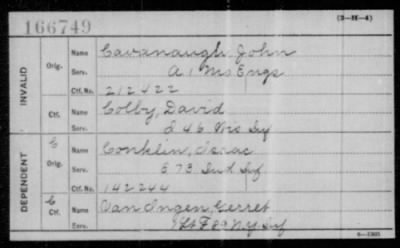 166749
(3-H-4)
INVALID
Orig.
Name Cavanaugh, John
Serv. A 1 Mo Engs
Ctf. No. 212422
Ctf.
Name Colby, David
Serv. I 46 Wis Inf
DEPENDENT
C
Orig.
Name Conklin, Isaac
Serv. E 73 Ind Inf
Ctf. No. 142244
C
Ctf.
Name Van Ingen, Gerret
Serv. F 89 N.Y Inf